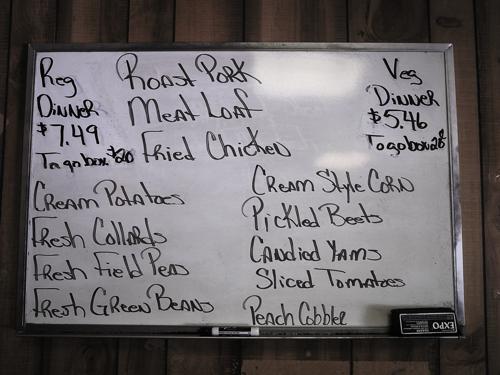 Reg
Dinner
$7.49
To go box $.20
Roast Pork
Meat Loaf
Fried Chicken
Veg
Dinner
$5.46
To go box
Cream Potatoes
Fresh Collards
Fresh Field Peas
Fresh Green Beans
Cream Style Corn
Pickled Beets
Candied Yams
Sliced Tomatoes
Peach Cobbler
EXPO